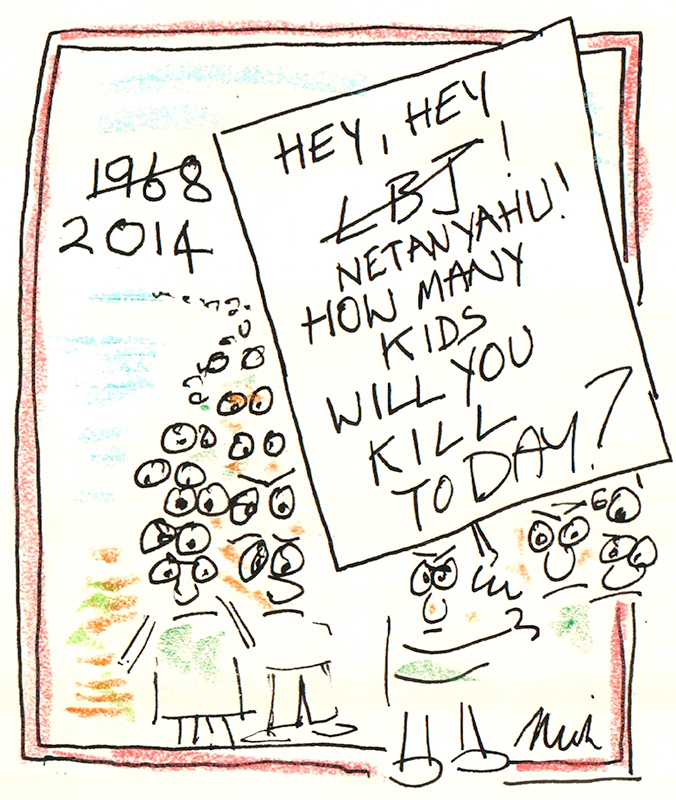 1968
2014
HEY, HEY
LBJ!
NETANYAHU!
HOW MANY
KIDS
WILL YOU
KILL
TODAY?